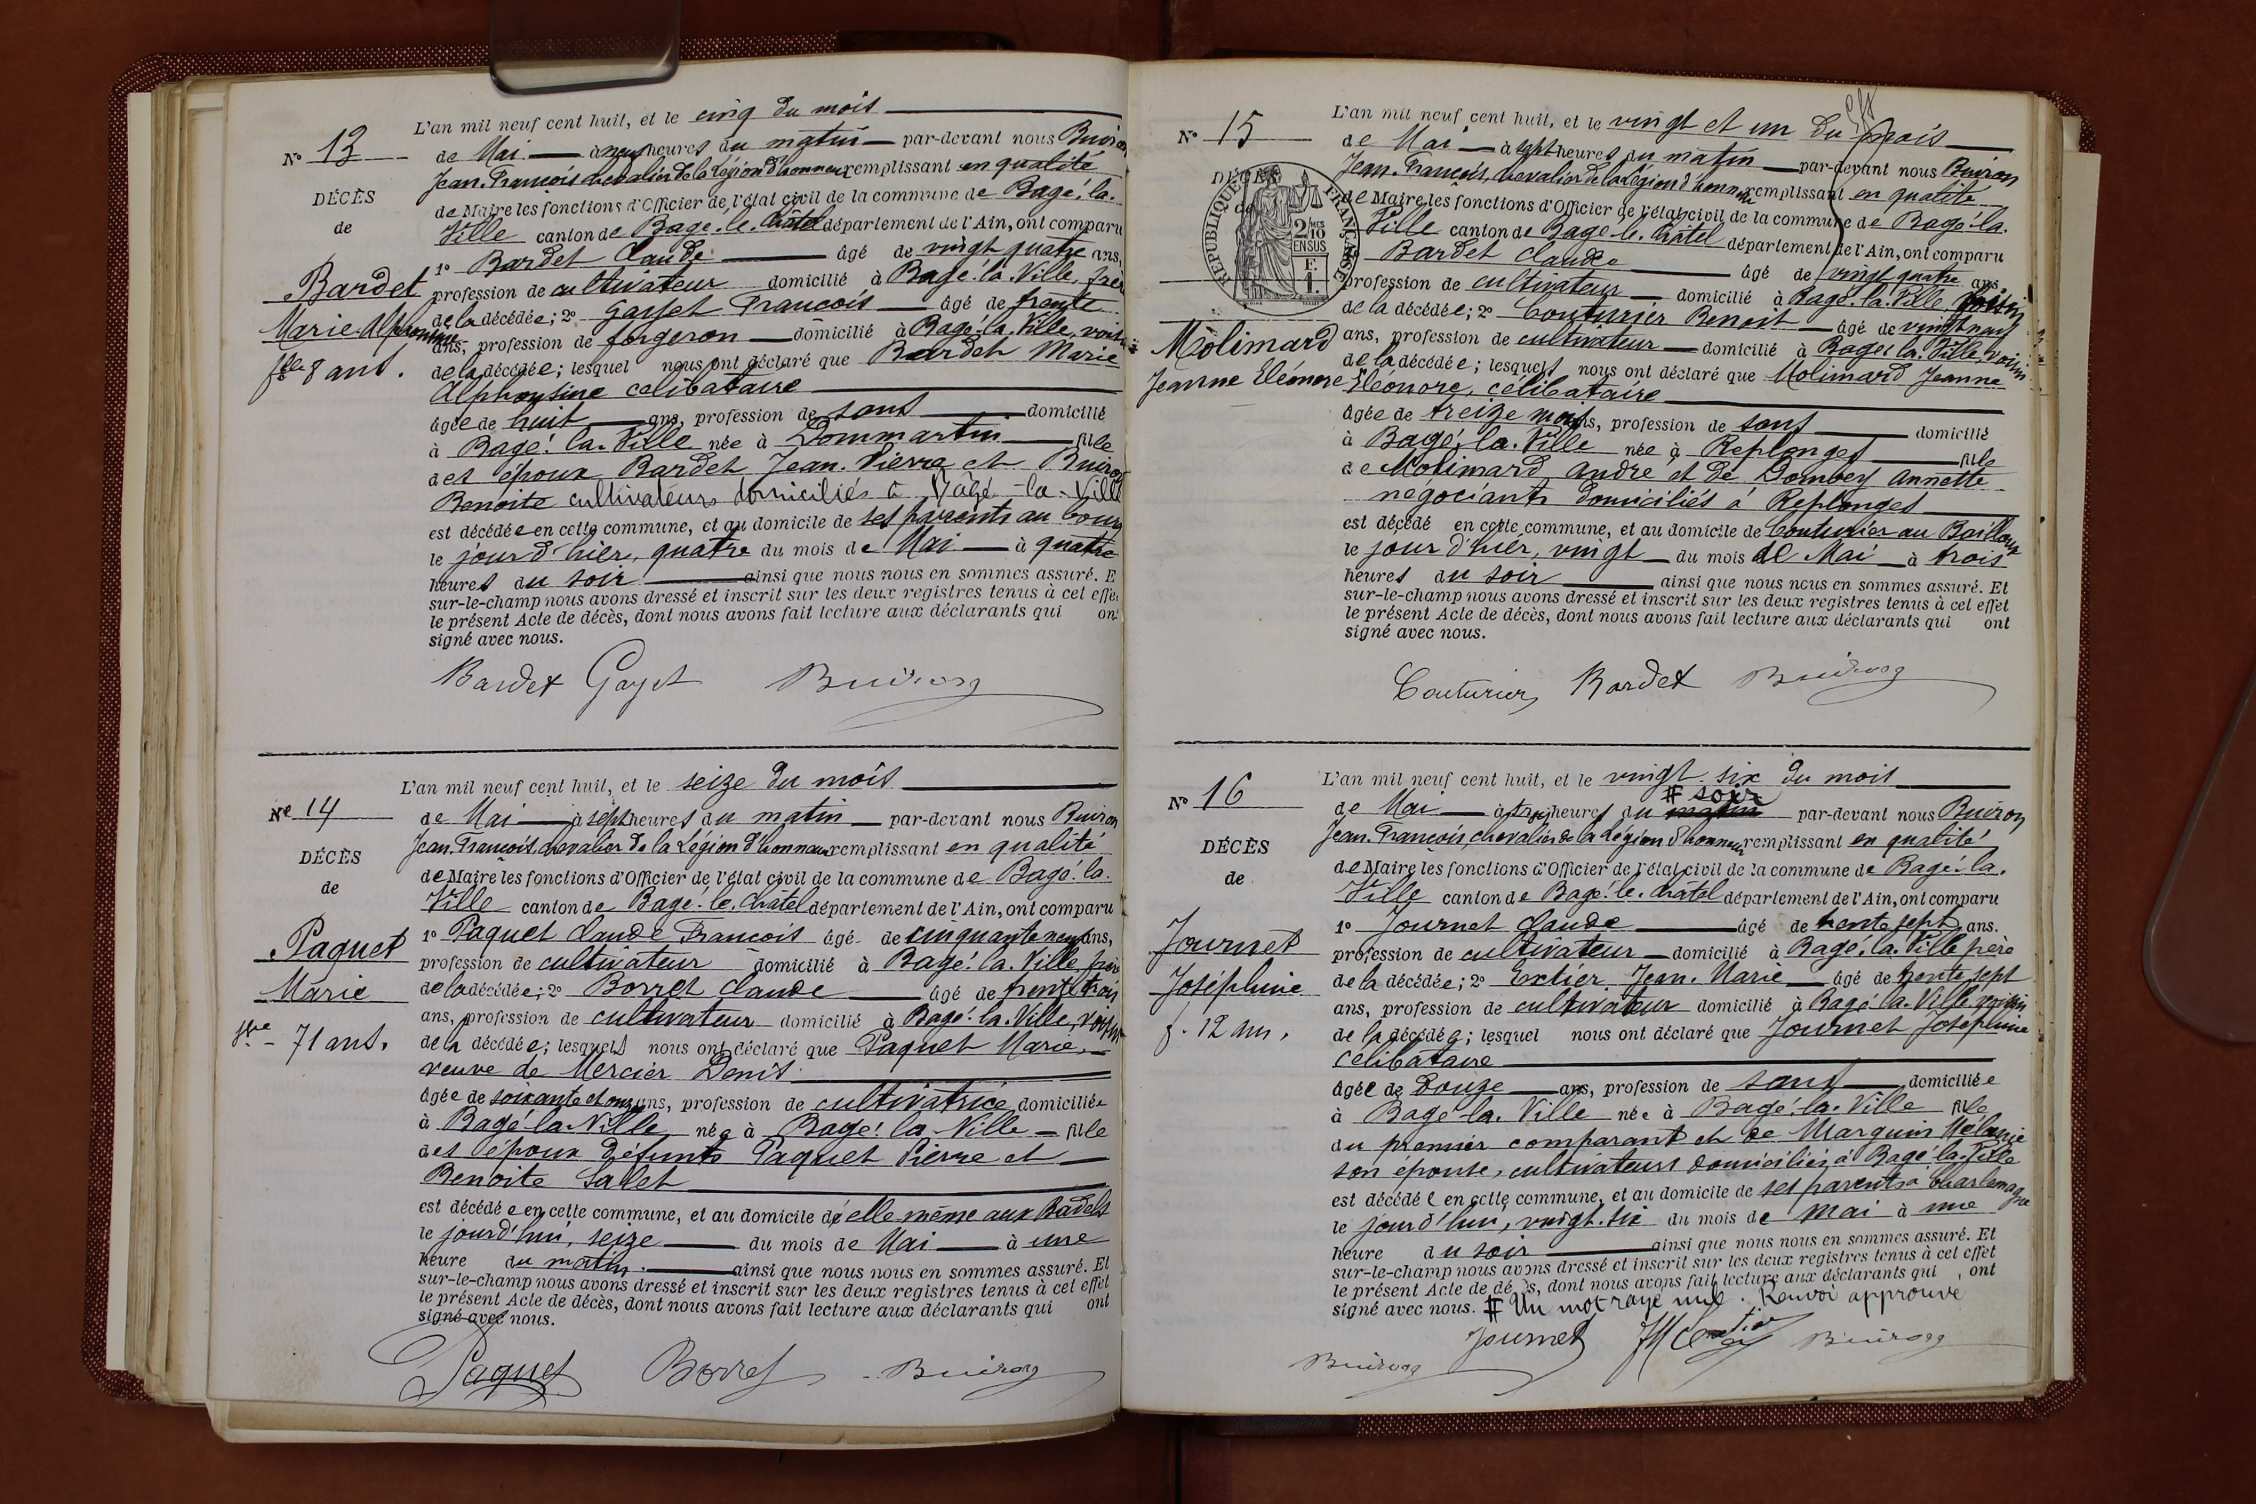 N° 13
DÉCÈS
de
Bardet
Marie Alphonsine
fille 8 ans.
L'an mil neuf cent huit, et le cinq du mois
de Mai à neuf heures du matin par-devant nous Buiron
Jean-François chevalier de la Légion d'honneur remplissant en qualité
de Maire les fonctions d'Officier de l'état civil de la commune de Bagé-la-
Ville canton de Bagé-le-Châtel département de l'Ain, ont comparu
1° Bardet Claude âgé de vingt quatre ans,
profession de cultivateur domicilié à Bagé-la-Ville, frère
de la décédée; 2° Gayet François âgé de trente
ans, profession de forgeron domicilié à Bagé-la-Ville, voisin
de la décédée; lesquel nous ont déclaré que Bardet Marie
Alphonsine célibataire
âgée de huit ans, profession de sans domicilié
à Bagé-la-Ville née à Dommartin fille
des époux Bardet Jean-Pierre et Buiron
Benoite cultivateurs domiciliés à Bagé-la-Ville
est décédée en cette commune, et au domicile de ses parents au bourg
le jour d'hier, quatre du mois de Mai à quatre
heures du soir ainsi que nous nous en sommes assuré. E
sur-le-champ nous avons dressé et inscrit sur les deux registres tenus à cet effet
le présent Acte de décès, dont nous avons fait lecture aux déclarants qui ont
signé avec nous.
Bardet Gayet Buiron
N° 14
DÉCÈS
de
Paquet
Marie
fve 71 ans.
L'an mil neuf cent huit, et le seize du mois
de Mai à sept heures du matin par-devant nous Buiron
Jean-François, chevalier de la Légion d'honneur remplissant en qualité
de Maire les fonctions d'Officier de l'état civil de la commune de Bagé-la-
Ville canton de Bagé-le-Châtel département de l'Ain, ont comparu
1° Paquet Claude François âgé de cinquante neuf ans,
profession de cultivateur domicilié à Bagé-la-Ville, frère
de la décédée; 2° Borret Claude âgé de trente trois
ans, profession de cultivateur domicilié à Bagé-la-Ville, voisin
de la décédée; lesquels nous ont déclaré que Paquet Marie,
veuve de Mercier Denis
âgée de soixante et onze ans, profession de cultivatrice domiciliée
à Bagé-la-Ville née à Bagé-la-Ville fille
des époux défunts Paquet Pierre et
Benoite Salet
est décédée en cette commune, et au domicile d'elle même aux Badels
le jourd'hui, seize du mois de Mai à une
heure du matin ainsi que nous nous en sommes assuré. Et
sur-le-champ nous avons dressé et inscrit sur les deux registres tenus à cet effet
le présent Acte de décès, dont nous avons fait lecture aux déclarants qui ont
signé avec nous.
Paquet Borret Buiron
N° 15
DÉCÈS
RÉPUBLIQUE FRANÇAISE
2 10
EN SUS
Molimard
Jeanne Eléonore
L'an mil neuf cent huit, et le vingt et un du mois
de Mai à sept heures du matin par-devant nous Buiron
Jean-François, chevalier de la Légion d'honneur remplissant en qualité
de Maire les fonctions d'Officier de l'état civil de la commune de Bagé-la-
Ville canton de Bagé-le-Châtel département de l'Ain, ont comparu
Bardet Claude âgé de vingt quatre ans
profession de cultivateur domicilié à Bagé-la-Ville voisin
de la décédée; 2° Couturier Benoit âgé de vingt neuf
ans, profession de cultivateur domicilié à Bagé-la-Ville, voisin
de la décédée; lesquels nous ont déclaré que Molimard Jeanne
Eléonore, célibataire
âgée de treize mois, profession de sans domicilié
à Bagé-la-Ville née à Replonges fille
de Molimard André et de Dombey Annette
négociants domiciliés à Replonges
est décédé en cette commune, et au domicile de Couturier au Bailloux
le jour d'hier, vingt du mois de Mai à trois
heures du soir ainsi que nous nous en sommes assuré. Et
sur-le-champ nous avons dressé et inscrit sur les deux registres tenus à cet effet
le présent Acte de décès, dont nous avons fait lecture aux déclarants qui ont
signé avec nous.
Couturier Bardet Buiron
N° 16
DÉCÈS
de
Journet
Joséphine
f. 12 ans.
L'an mil neuf cent huit, et le vingt-six du mois
# soir
de Mai à trois heures du matin par-devant nous Buiron
Jean-François, chevalier de la Légion d'honneur remplissant en qualité
de Maire les fonctions d'Officier de l'état civil de la commune de Bagé-la-
Ville canton de Bagé-le-Châtel département de l'Ain, ont comparu
1° Journet Claude âgé de trente sept ans.
profession de cultivateur domicilié à Bagé-la-Ville père
de la décédée; 2° Extier Jean-Marie âgé de trente sept
ans, profession de cultivateur domicilié à Bagé-la-Ville voisin
de la décédée; lesquel nous ont déclaré que Journet Joséphine
célibataire
âgée de douze ans, profession de sans domiciliée
à Bagé-la-Ville née à Bagé-la-Ville fille
du premier comparant et de Marguin Mélanie
son épouse, cultivateurs domiciliés à Bagé-la-Ville
est décédée en cette commune, et au domicile de ses parents à Charlemagne
le jourd'hui, vingt-six du mois de Mai à une
heure du soir ainsi que nous nous en sommes assuré. Et
sur-le-champ nous avons dressé et inscrit sur les deux registres tenus à cet effet
le présent Acte de décès, dont nous avons fait lecture aux déclarants qui ont
signé avec nous. # Un mot rayé nul. Renvoi approuvé
Journet Buiron
Buiron